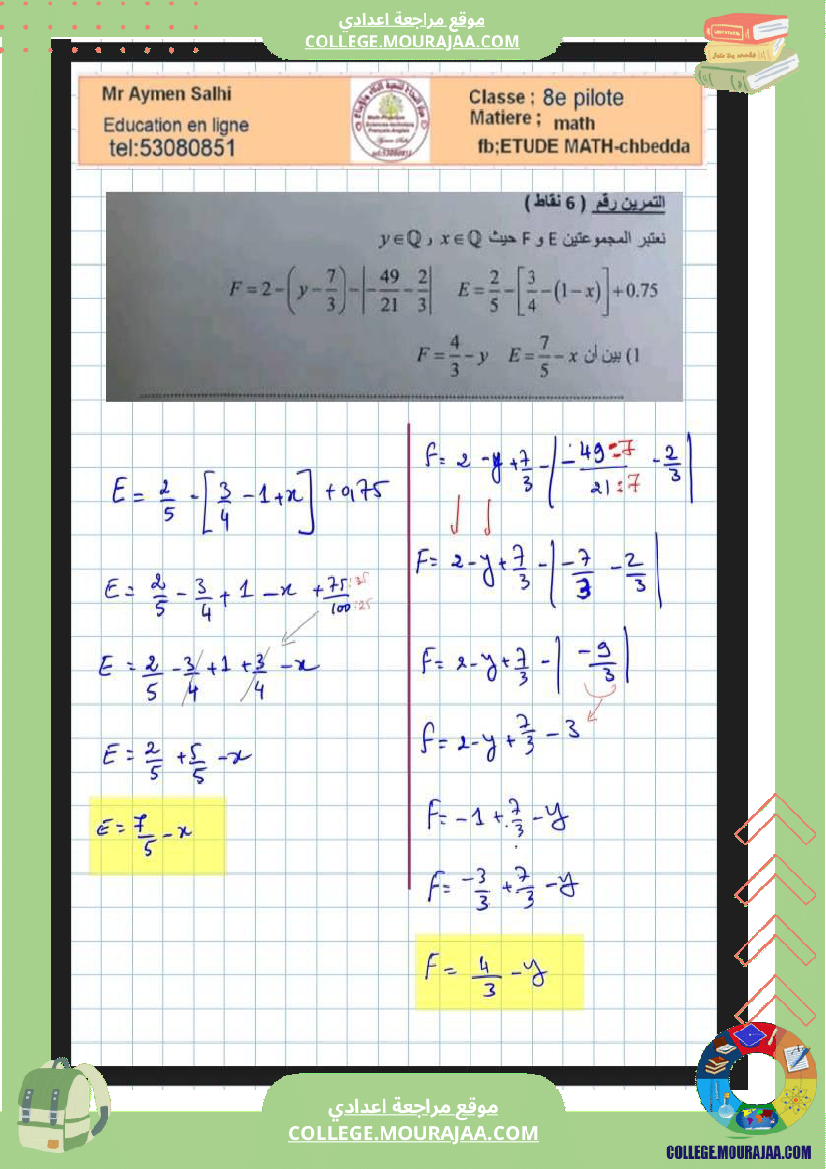 موقع مراجعة اعدادي
COLLEGE.MOURAJAA.COM
Mr Aymen Salhi
Education en ligne
tel:53080851
Classe ; 8e pilote
Matiere ; math
fb;ETUDE MATH-chbedda
التمرين رقم ( 6 نقاط )
نعتبر المجموعتين E و F حيث x∈Q و y∈Q
F = 2 - (y - 7/3) - |-49/21 - 2/3| E = 2/5 - [3/4 - (1 - x)] + 0.75
1) بين أن E = 7/5 - x F = 4/3 - y
E = 2/5 - [3/4 - 1 + x] + 0,75
E = 2/5 - 3/4 + 1 - x + 75:25/100:25
E = 2/5 - 3/4 + 1 + 3/4 - x
E = 2/5 + 5/5 - x
E = 7/5 - x
F = 2 - y + 7/3 - |-49:7/21:7 - 2/3|
F = 2 - y + 7/3 - |-7/3 - 2/3|
F = 2 - y + 7/3 - |-9/3|
F = 2 - y + 7/3 - 3
F = -1 + 7/3 - y
F = -3/3 + 7/3 - y
F = 4/3 - y
موقع مراجعة اعدادي
COLLEGE.MOURAJAA.COM
COLLEGE.MOURAJAA.COM